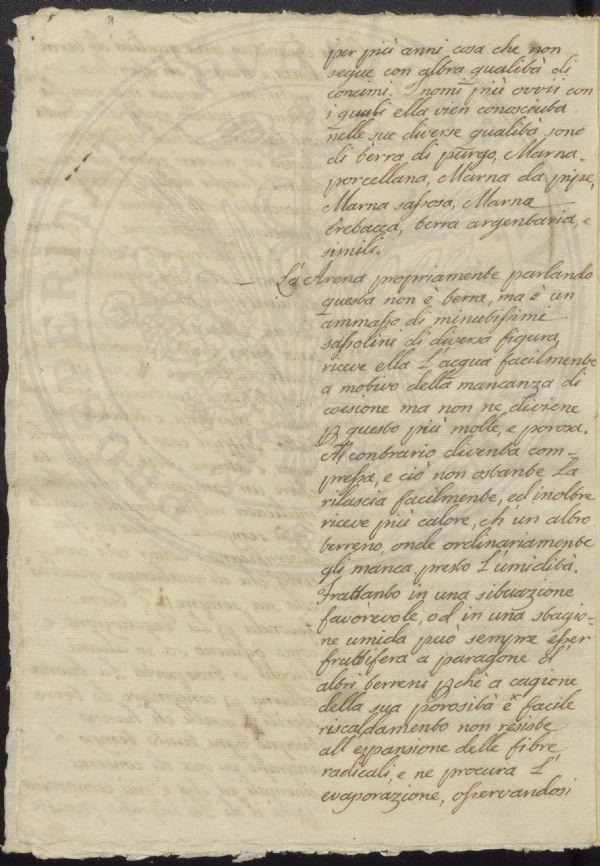 per più anni cosa che non
segue con altra qualità di
concimi. I nomi più ovvii con
i quali ella vien conosciuta
nelle sue diverse qualità sono
di terra di purgo, Marna
porcellana, Marna da pipe,
Marna sassosa, Marna
trebacca, terra argentaria, e
simili.
— La Arena propriamente parlando
questa non è terra, ma è un
ammasso di minutissimi
sassolini di diversa figura,
riceve ella l'acqua facilmente
a motivo della mancanza di
coesione ma non ne diviene
p questo più molle, e porosa.
Al contrario diventa com-
pressa, e ciò non ostante la
rilascia facilmente, ed inoltre
riceve più calore, ch'un altro
terreno, onde ordinariamente
gli manca presto l'umidità.
Frattanto in una situazione
favorevole, od in una stagio-
ne umida può sempre esser
fruttifera a paragone d'
altri terreni pchè a cagione
della sua porosità e facile
riscaldamento non resiste
all'espansione delle fibre
radicali, e ne procura l'
evaporazione, osservandosi